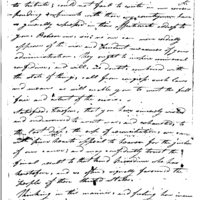 to tribute; could not fail to excite in me corres-
ponding sentiments with those my countrymen have
so generally expressed in their affectionate Addresses to
you. Believe me, Sir, no one can more cordially
approve of the wise and prudent measures of your
administration. They ought to inspire universal
confidence, and will, no doubt, combined with
the state of things, call from Congress such laws
and means as will enable you to meet the full
force and extent of the crisis.
Satisfied therefore, that you have sincerely wished
and endeavoured to avert war, and exhausted, to
the last drop, the cup of reconciliation, we can
with pure hearts appeal to Heaven for the justice
of our cause; and may confidently trust the
final result to that kind Providence who has
heretofore, and so often, signally favoured the
people of these United States.
Thinking in this manner, and feeling how incum